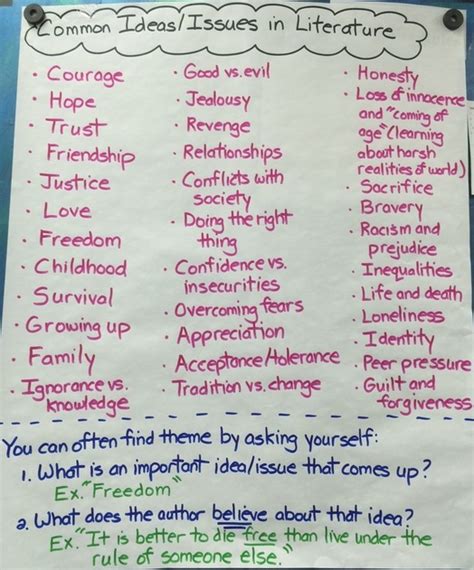 Common Ideas/Issues in Literature
• Courage
• Hope
• Trust
• Friendship
• Justice
• Love
• Freedom
• Childhood
• Survival
• Growing up
• Family
• Ignorance vs.
knowledge
• Good vs. evil
• Jealousy
• Revenge
• Relationships
• Conflicts with
society
• Doing the right
thing
• Confidence vs.
insecurities
• Overcoming fears
• Appreciation
• Acceptance/tolerance
• Tradition vs. change
• Honesty
• Loss of innocence
and "coming of
age" (learning
about harsh
realities of world)
• Sacrifice
• Bravery
• Racism and
prejudice
• Inequalities
• Life and death
• Loneliness
• Identity
• Peer pressure
• Guilt and
forgiveness
You can often find theme by asking yourself:
1. What is an important idea/issue that comes up?
Ex. "Freedom"
2. What does the author believe about that idea?
Ex. "It is better to die free than live under the
rule of someone else."